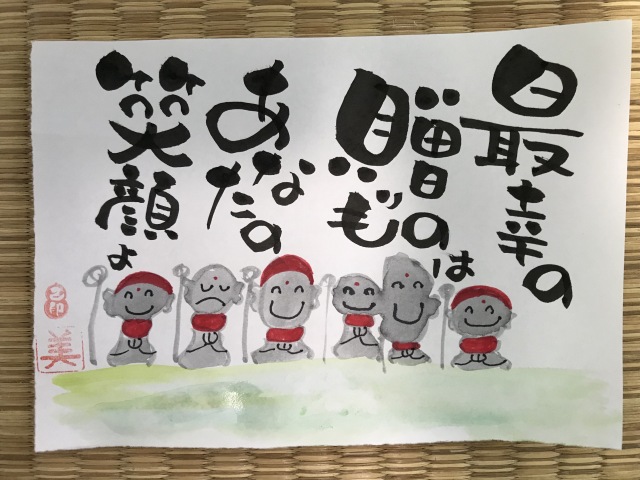 最幸の
贈りものは
あなたの
笑顔よ
美